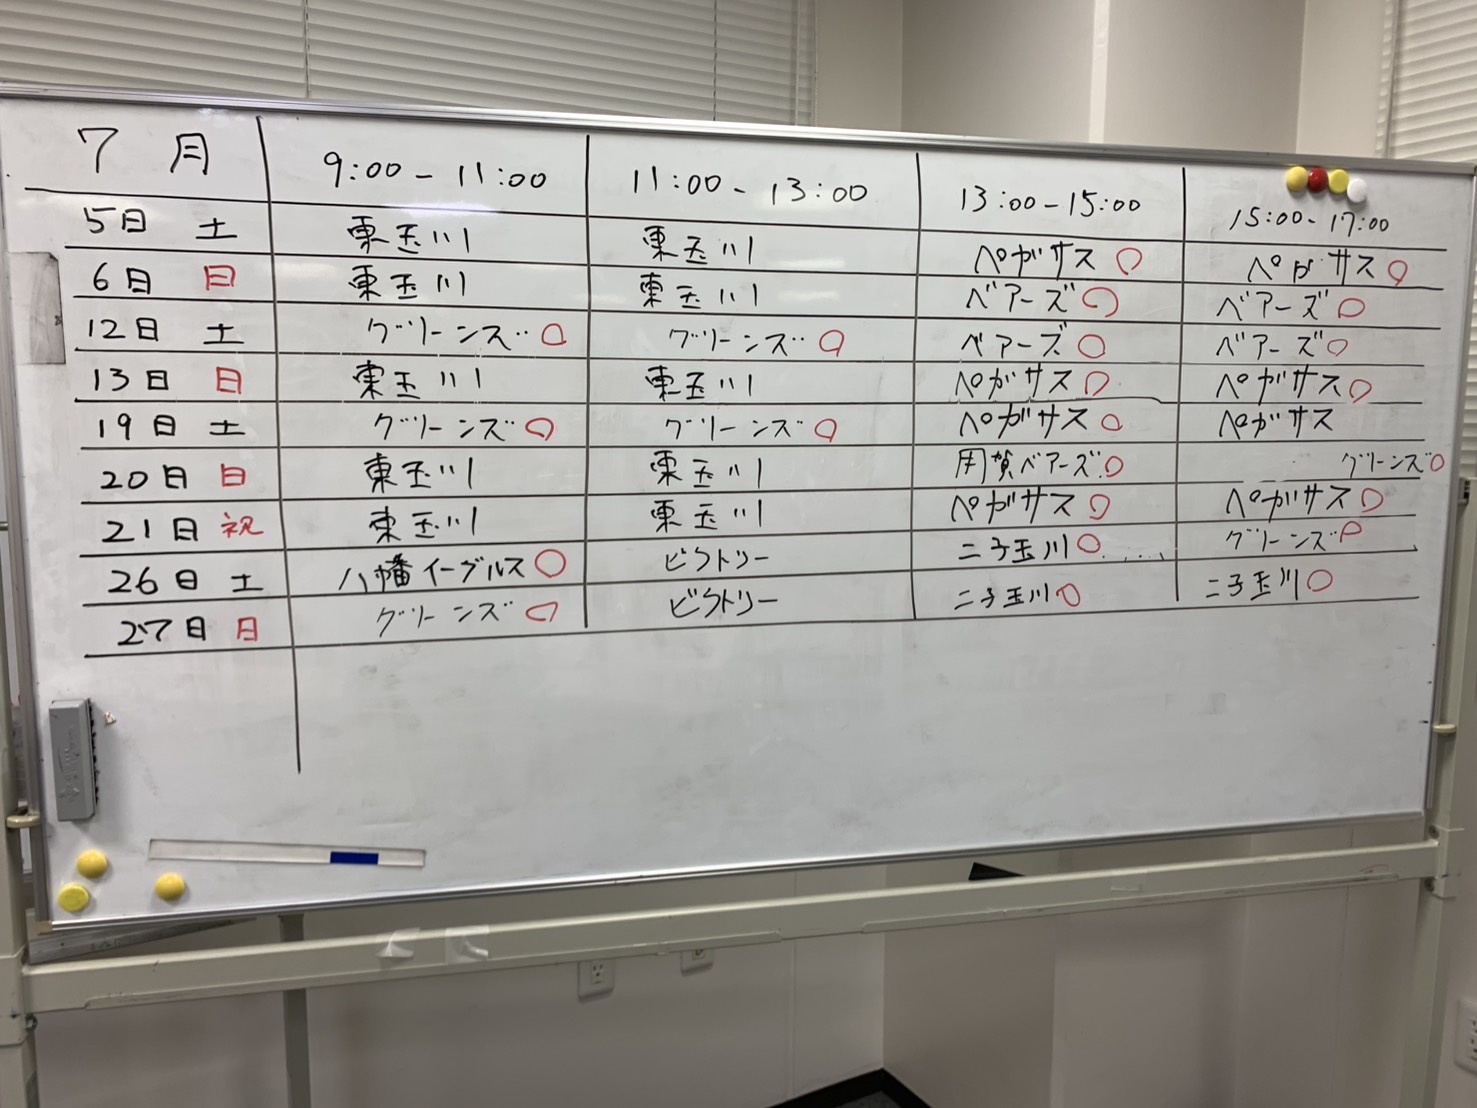 7月 9:00-11:00 11:00-13:00 13:00-15:00 15:00-17:00
5日 土 東玉川 東玉川 ペガサス○ ペガサス○
6日 日 東玉川 東玉川 ベアーズ○ ベアーズ○
12日 土 グリーンズ○ グリーンズ○ ベアーズ○ ベアーズ○
13日 日 東玉川 東玉川 ペガサス○ ペガサス○
19日 土 グリーンズ○ グリーンズ○ ペガサス○ ペガサス
20日 日 東玉川 東玉川 用賀ベアーズ○ グリーンズ○
21日 祝 東玉川 東玉川 ペガサス○ ペガサス○
26日 土 八幡イーグルス○ ビクトリー 二子玉川○ グリーンズ○
27日 日 グリーンズ○ ビクトリー 二子玉川○ 二子玉川○